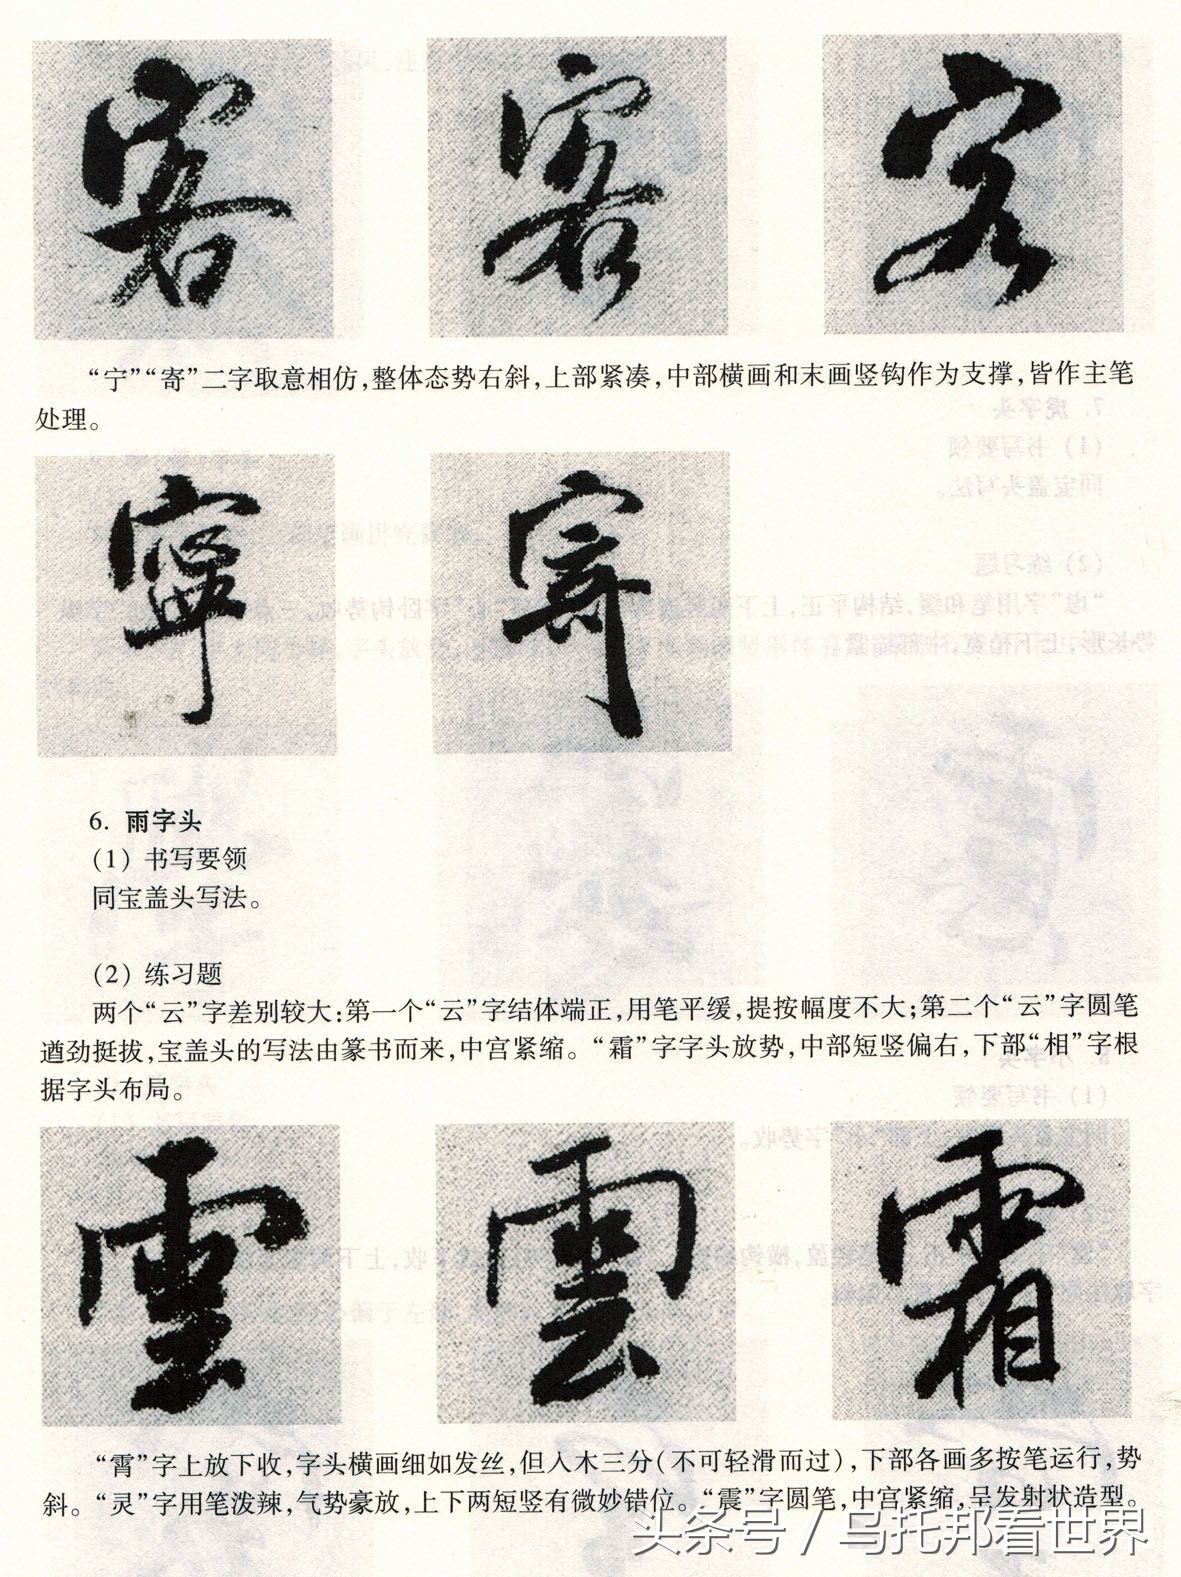 客 客 客
“宁”“寄”二字取意相仿，整体态势右斜，上部紧凑，中部横画和末画竖钩作为支撑，皆作主笔
处理。
寧 寄
6. 雨字头
(1) 书写要领
同宝盖头写法。
(2) 练习题
两个“云”字差别较大：第一个“云”字结体端正，用笔平缓，提按幅度不大；第二个“云”字圆笔
遒劲挺拔，宝盖头的写法由篆书而来，中宫紧缩。“霜”字字头放势，中部短竖偏右，下部“相”字根
据字头布局。
雲 雲 霜
“霄”字上放下收，字头横画细如发丝，但入木三分(不可轻滑而过)，下部各画多按笔运行，势
斜。“灵”字用笔泼辣，气势豪放，上下两短竖有微妙错位。“震”字圆笔，中宫紧缩，呈发射状造型。
头条号 / 乌托邦看世界